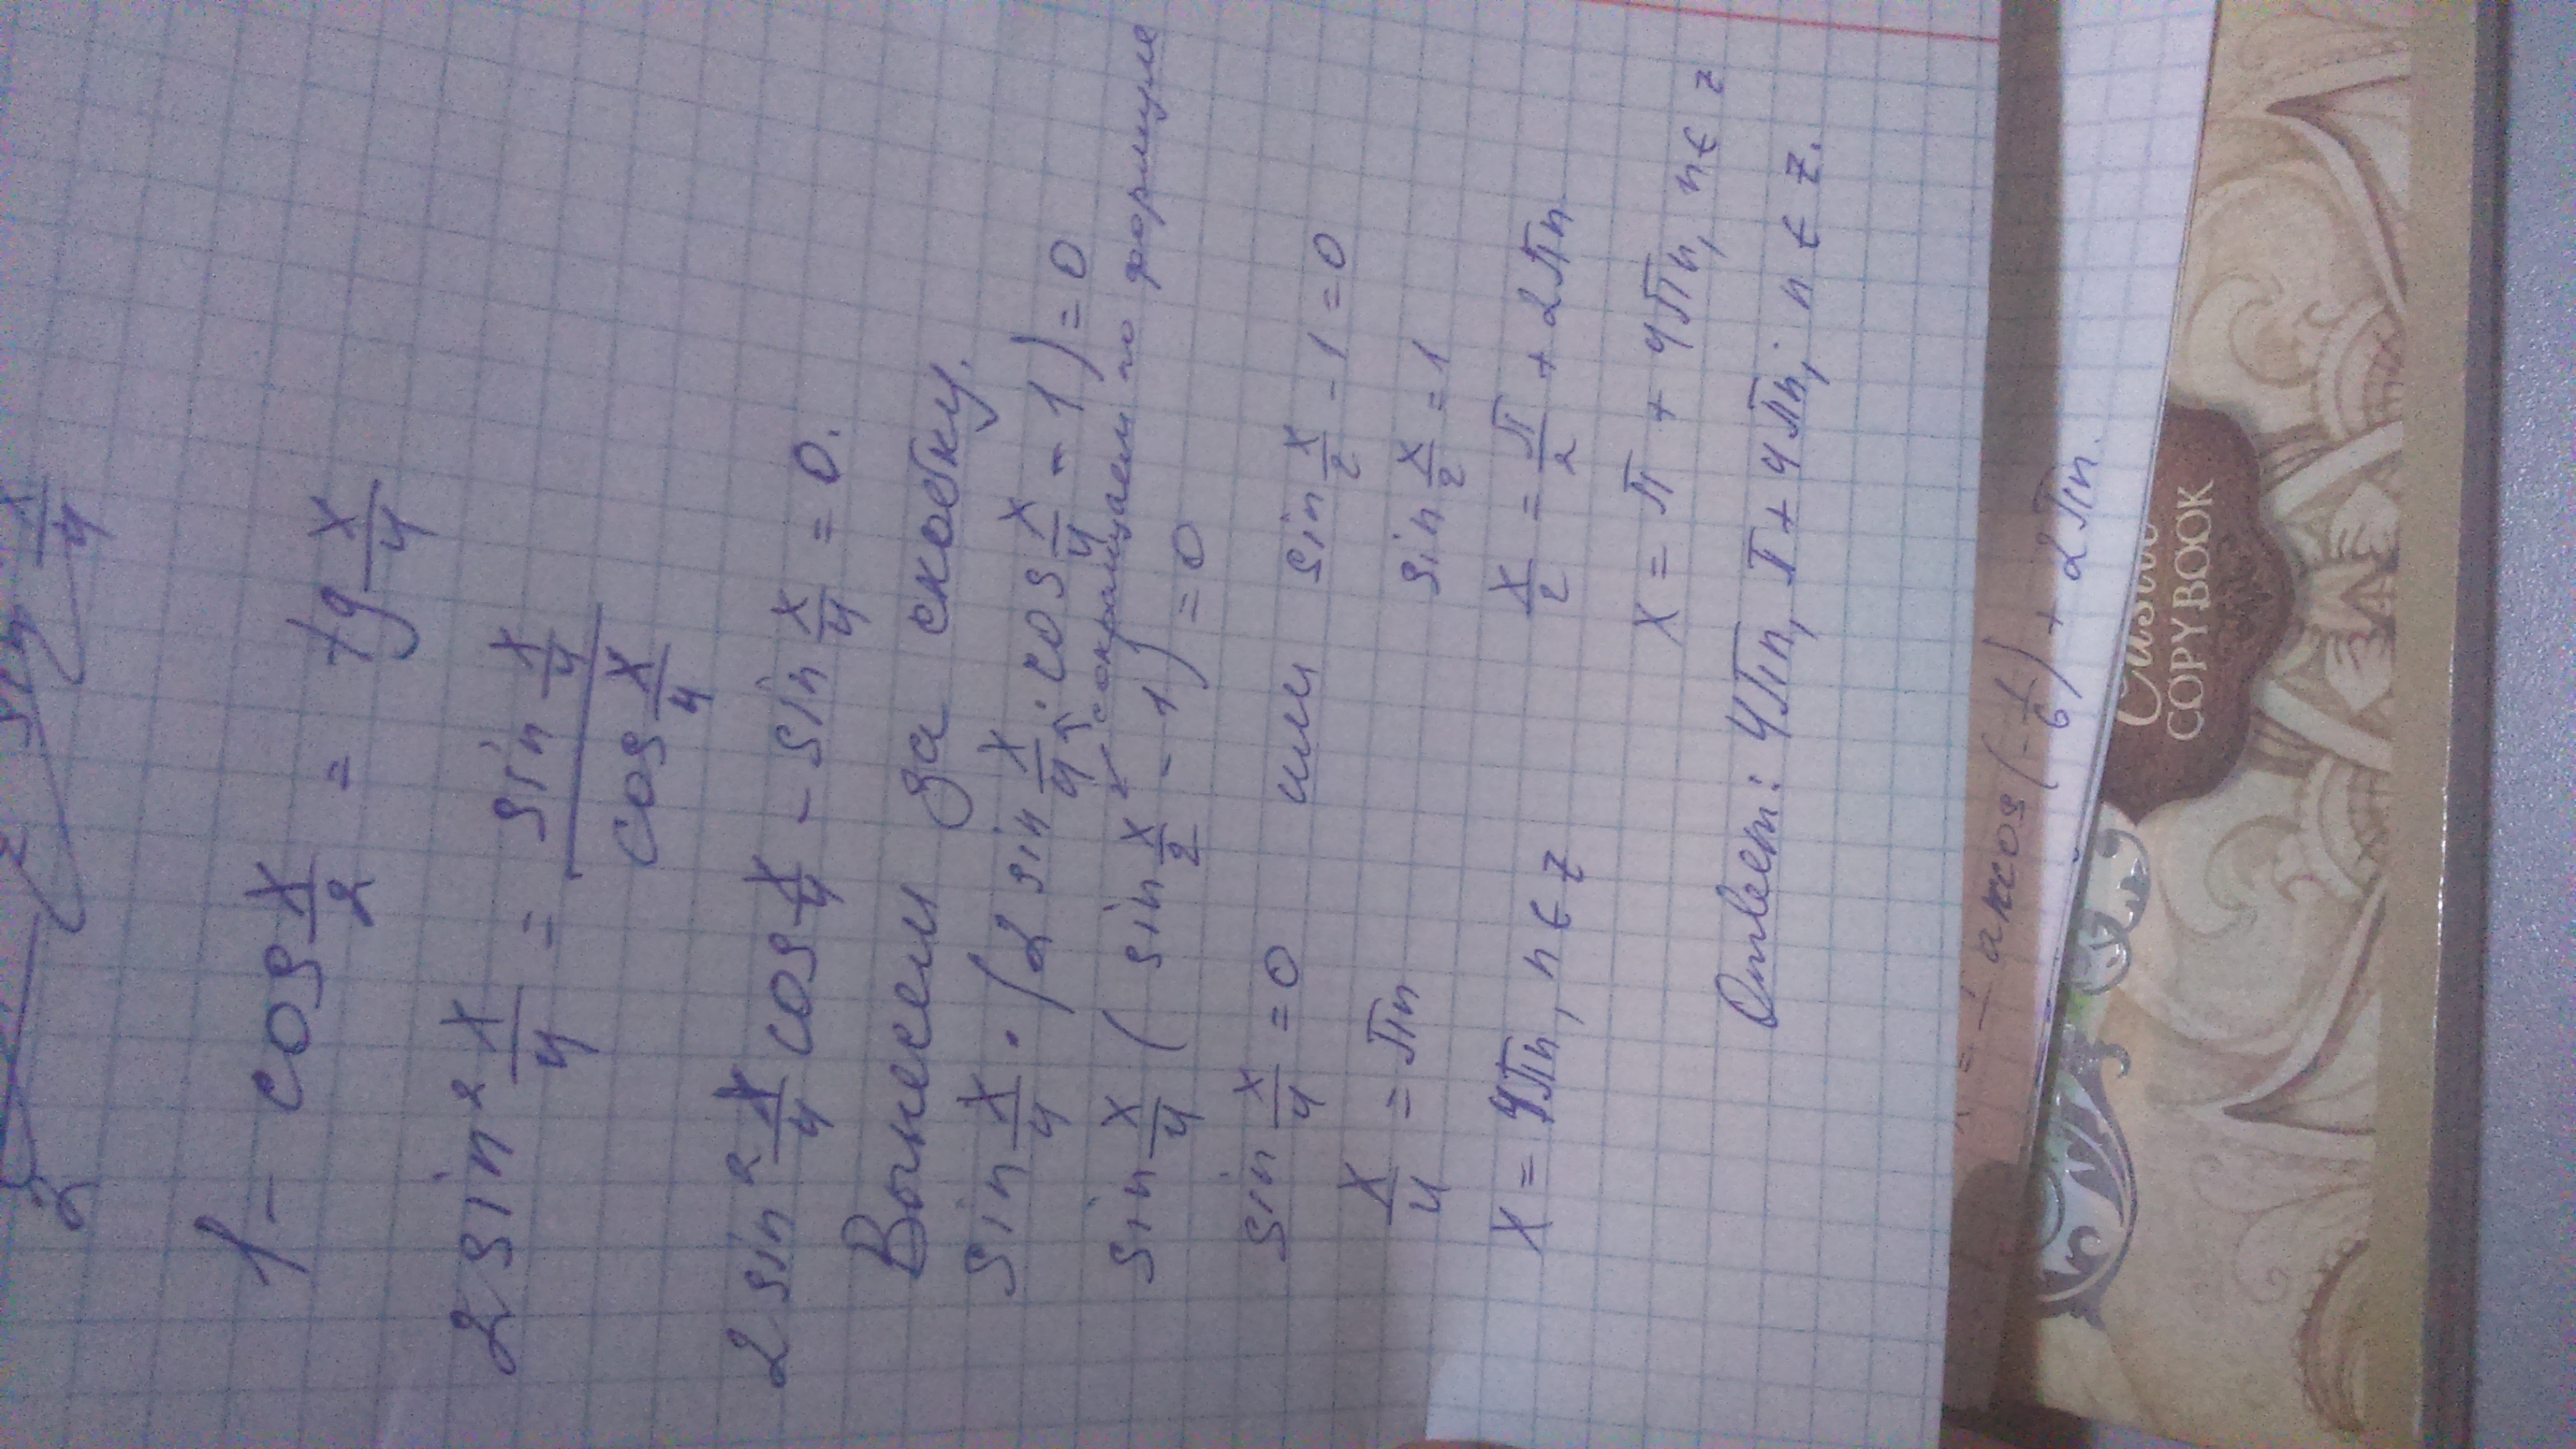 1 - cos x/2 = tg x/4
2 sin² x/4 = sin x/4 / cos x/4
2 sin² x/4 cos x/4 - sin x/4 = 0.
Вынесем за скобку.
sin x/4 · (2 sin x/4 · cos x/4 - 1) = 0
сокращаем по формуле
sin x/4 ( sin x/2 - 1) = 0
sin x/4 = 0 или sin x/2 - 1 = 0
x/4 = πn sin x/2 = 1
x = 4πn, n ∈ z x/2 = π/2 + 2πn
x = π + 4πn, n ∈ z
Ответ: 4πn, π + 4πn; n ∈ z.
arccos (-1/6) + 2πn.
COPY BOOK